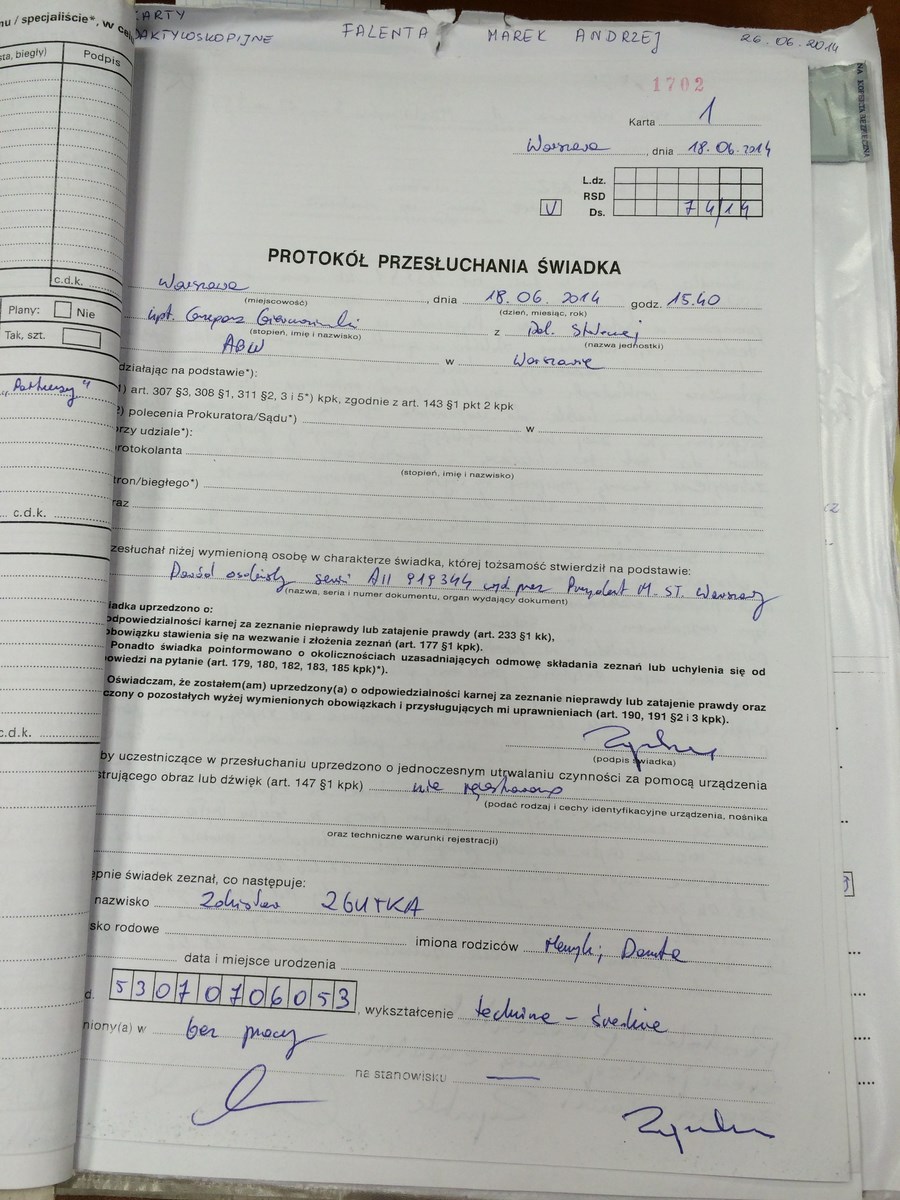 nu / specjaliście*, w celu
sta, biegły)
Podpis
c.d.k.
Plany:
Nie
Tak, szt.
c.d.k.
c.d.k.
KARTY
DAKTYLOSKOPIJNE
FALENTA MAREK ANDRZEJ
26.06.2014
1702
Karta 1
Warszawa, dnia 18.06.2014
L.dz.
RSD
V Ds. 74/14
PROTOKÓŁ PRZESŁUCHANIA ŚWIADKA
Warszawa, dnia 18.06.2014 godz. 15.40
(miejscowość) (dzień, miesiąc, rok)
kpt. Grzegorz z
(stopień, imię i nazwisko) (nazwa jednostki)
ABW w Warszawie
działając na podstawie*):
1) art. 307 §3, 308 §1, 311 §2, 3 i 5*) kpk, zgodnie z art. 143 §1 pkt 2 kpk
2) polecenia Prokuratora/Sądu*) w
przy udziale*):
protokolanta
(stopień, imię i nazwisko)
stron/biegłego*)
oraz
przesłuchał niżej wymienioną osobę w charakterze świadka, której tożsamość stwierdził na podstawie:
Dowód osobisty serii AII 919344 wyd przez Prezydent M. ST. Warszawy
(nazwa, seria i numer dokumentu, organ wydający dokument)
iadka uprzedzono o:
odpowiedzialności karnej za zeznanie nieprawdy lub zatajenie prawdy (art. 233 §1 kk),
obowiązku stawienia się na wezwanie i złożenia zeznań (art. 177 §1 kpk).
Ponadto świadka poinformowano o okolicznościach uzasadniających odmowę składania zeznań lub uchylenia się od
owiedzi na pytanie (art. 179, 180, 182, 183, 185 kpk)*).
Oświadczam, że zostałem(am) uprzedzony(a) o odpowiedzialności karnej za zeznanie nieprawdy lub zatajenie prawdy oraz
czony o pozostałych wyżej wymienionych obowiązkach i przysługujących mi uprawnieniach (art. 190, 191 §2 i 3 kpk).
(podpis świadka)
by uczestniczące w przesłuchaniu uprzedzono o jednoczesnym utrwalaniu czynności za pomocą urządzenia
strującego obraz lub dźwięk (art. 147 §1 kpk) nie rejestrowano
(podać rodzaj i cechy identyfikacyjne urządzenia, nośnika
oraz techniczne warunki rejestracji)
ępnie świadek zeznał, co następuje:
nazwisko Zdzisław ZGUTKA
sko rodowe imiona rodziców Henryk; Danuta
data i miejsce urodzenia
d. 53070706053, wykształcenie techniczne – średnie
niony(a) w bez pracy
na stanowisku —